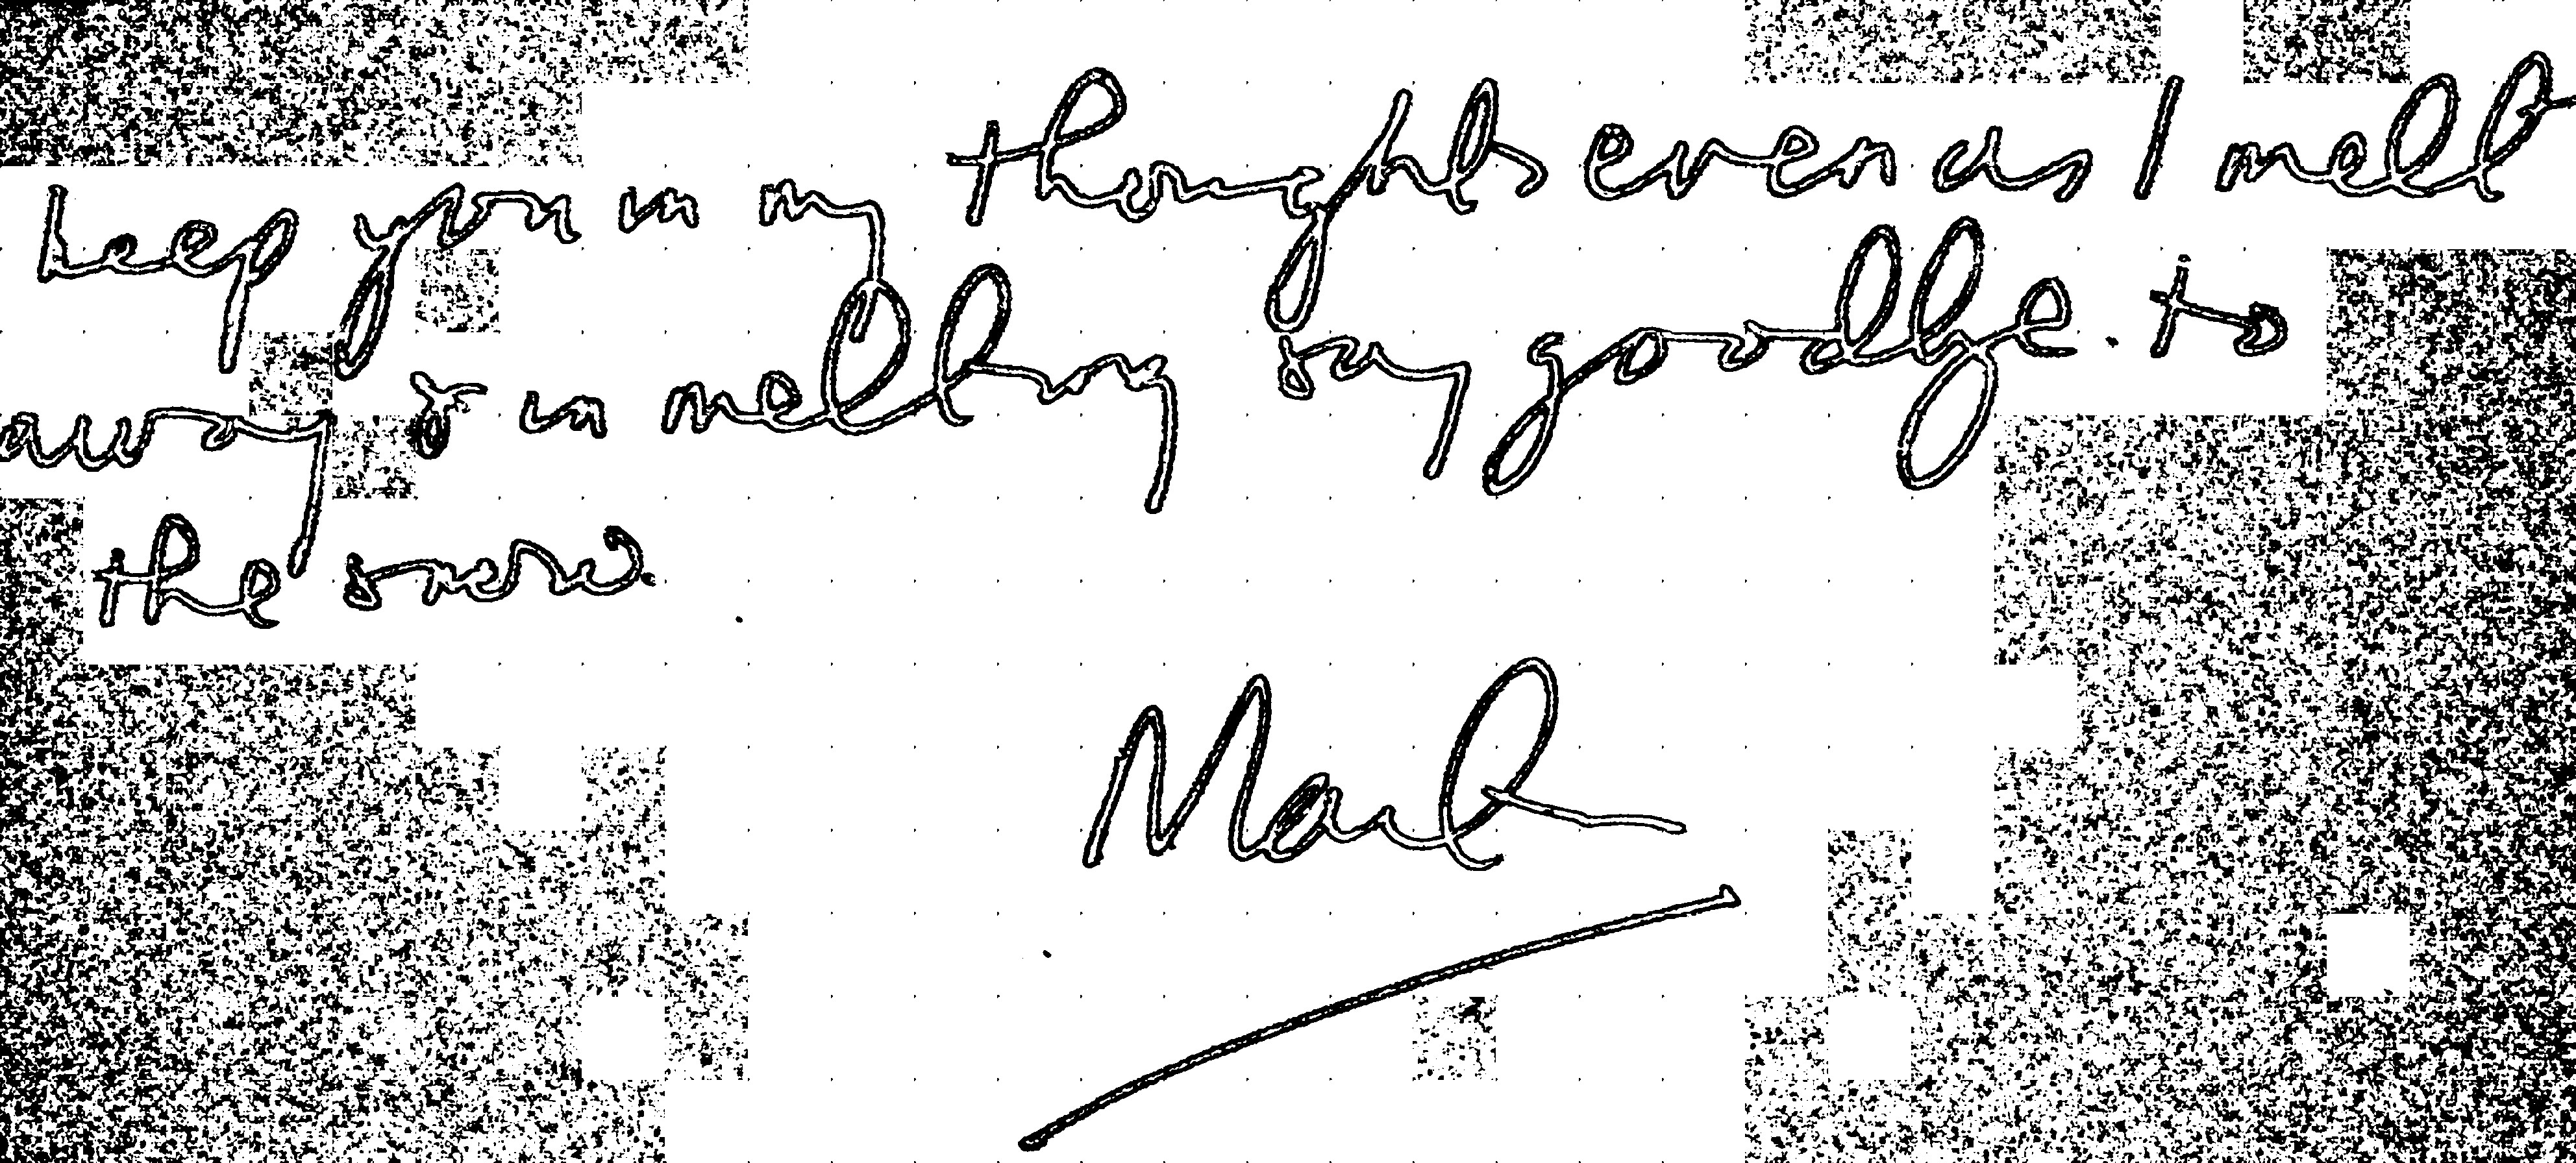 keep you in my thoughts even as I melt
away & in melting say goodbye. to
the snow.
Mark